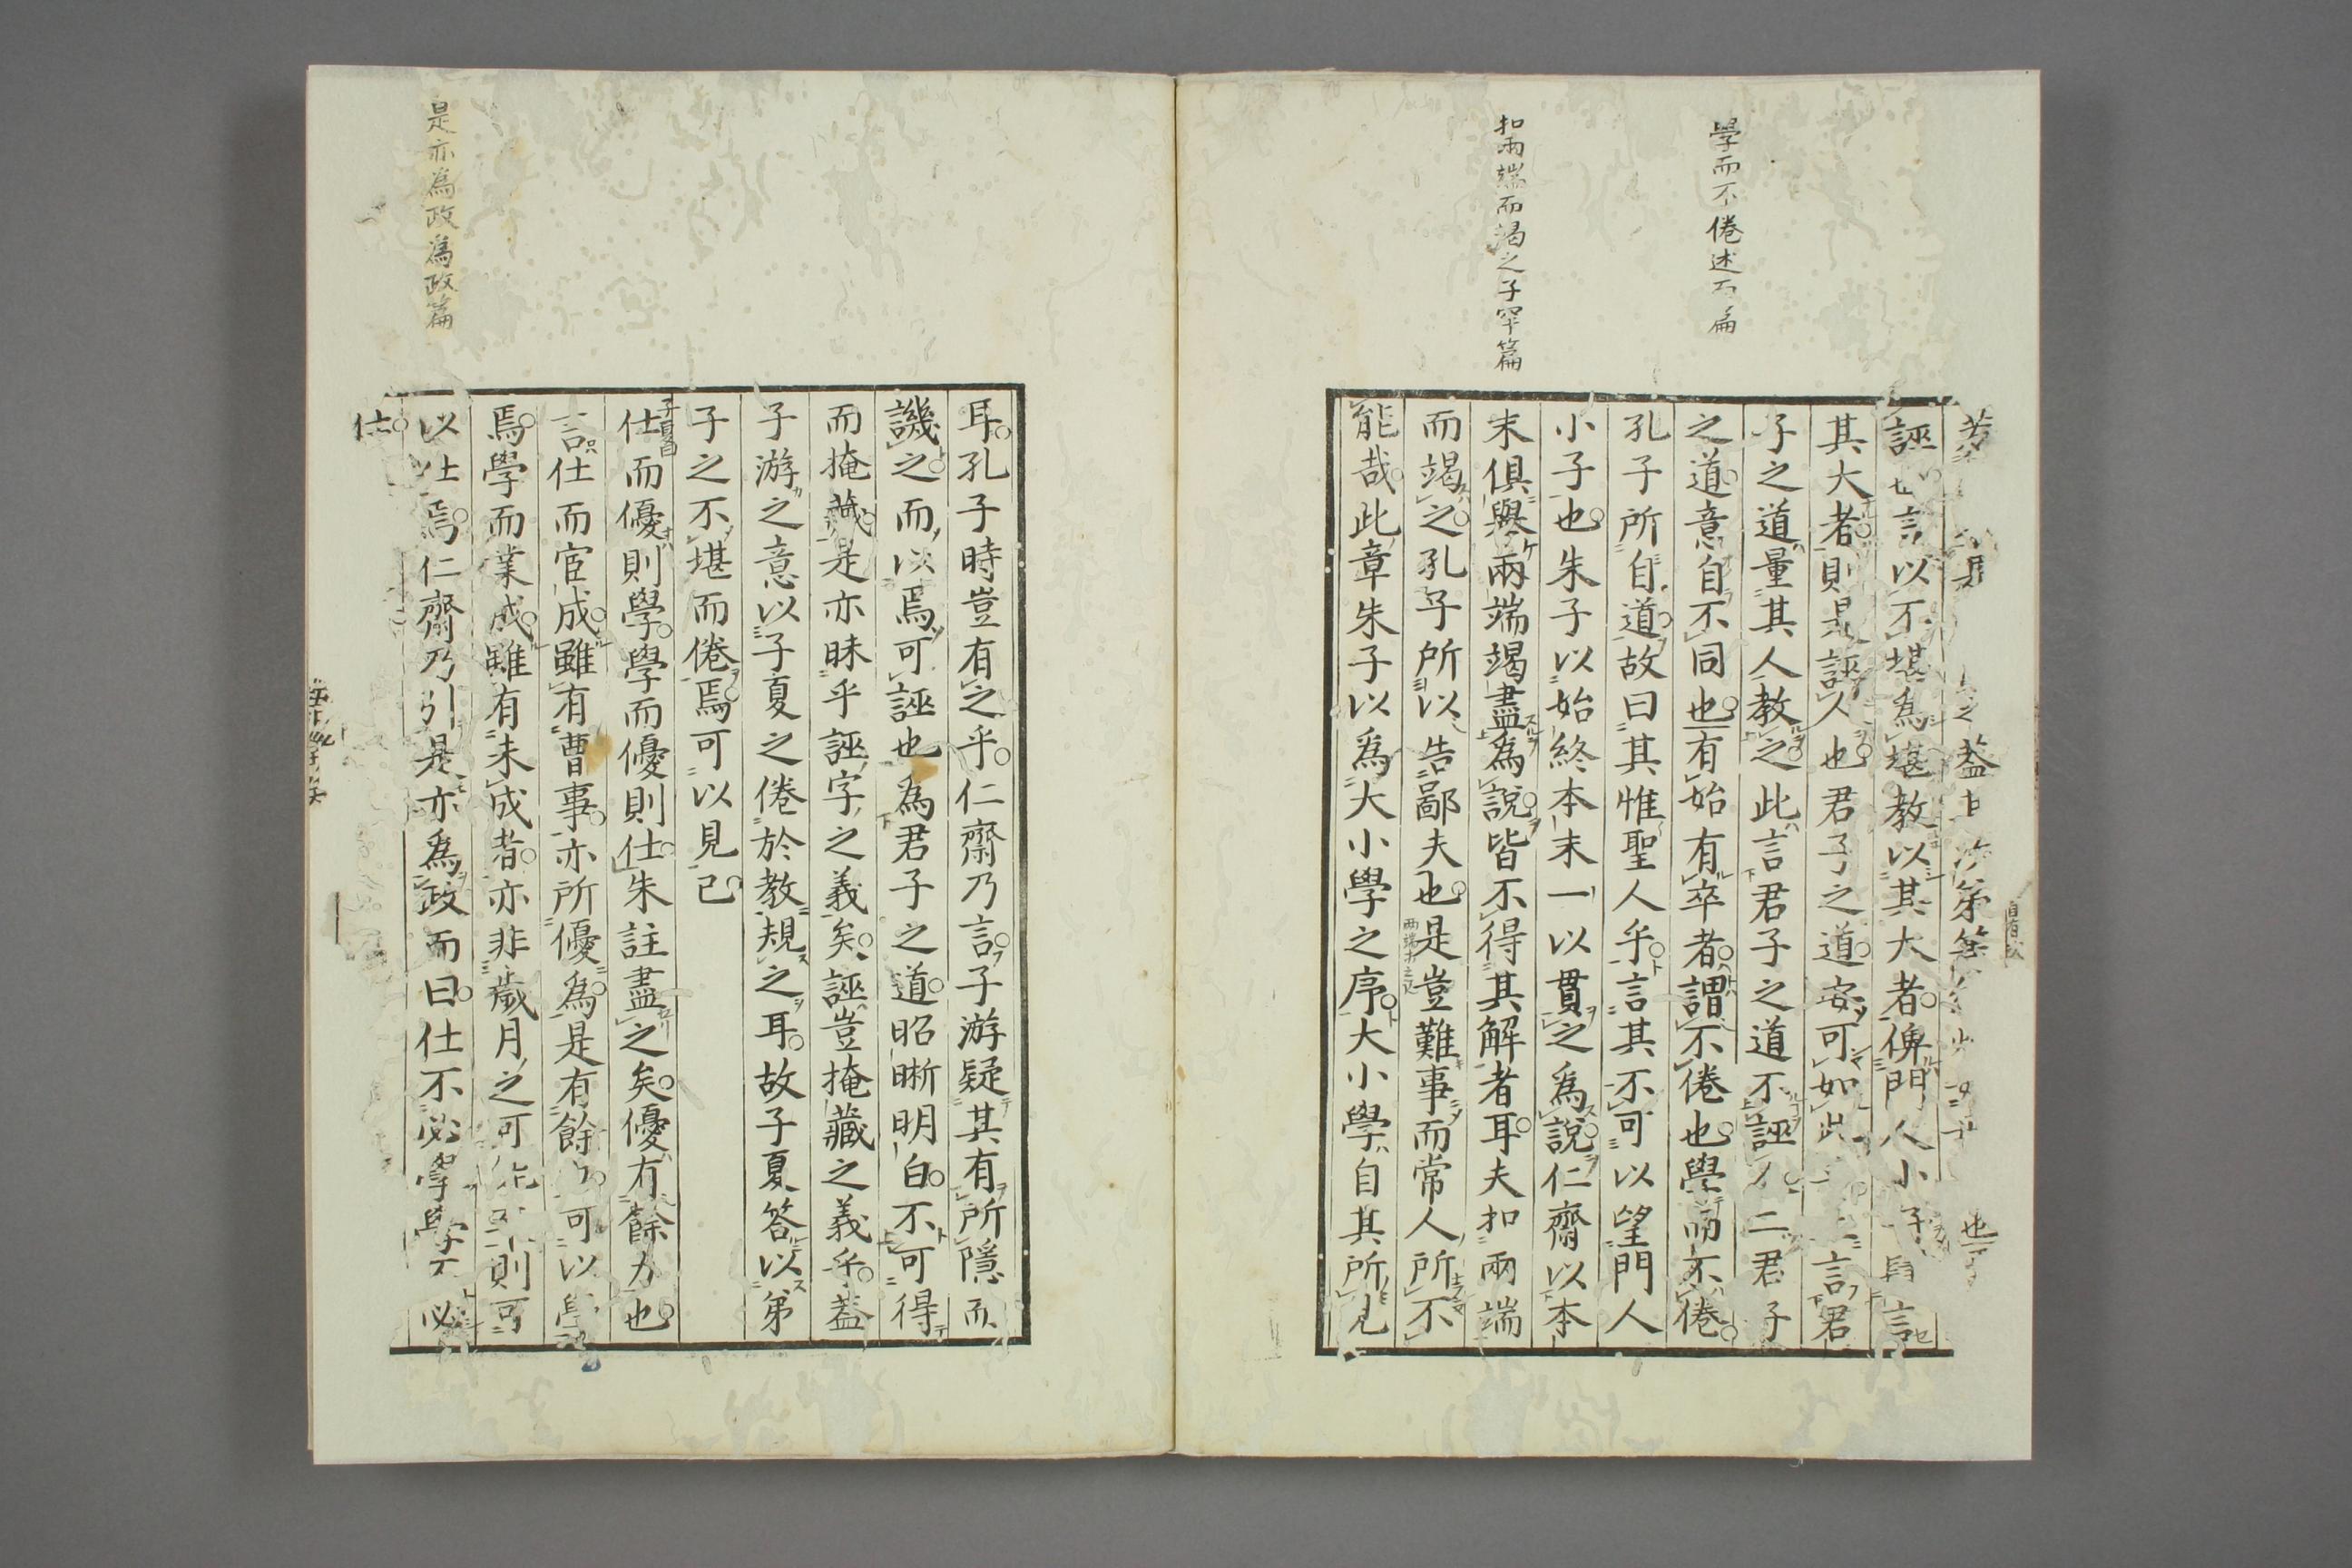 學而不倦述而篇
扣兩端而竭之子罕篇
蓋
次第
也
誣言以不堪爲堪教以其大者俾門人小子
言
其大者則是誣人也君子之道安可如此
言君
子之道量其人教之此言君子之道不誣人二君子
之道意自不同也有始有卒者謂不倦也學而不倦
孔子所自道故曰其惟聖人乎言其不可以望門人
小子也朱子以始終本末一以貫之爲說仁齋以本
末俱與兩端竭盡爲說皆不得其解者耳夫扣兩端
而竭之孔子所以告鄙夫也是豈難事而常人所不
能哉此章朱子以爲大小學之序大小學自其所見
是亦爲政爲政篇
耳孔子時豈有之乎仁齋乃言子游疑其有所隱而
譏之而以焉可誣也爲君子之道昭晰明白不可得
而掩藏是亦昧乎誣字之義矣誣豈掩藏之義乎蓋
子游之意以子夏之倦於教規之耳故子夏答以第
子之不堪而倦焉可以見已
子夏曰
仕而優則學學而優則仕朱註盡之矣優有餘力也
言仕而宦成雖有曹事亦所優爲是有餘力可以學
焉學而業成雖有未成者亦非歲月之可
則可
以仕焉仁齋乃引是亦爲政而曰仕不必學學不必
仕